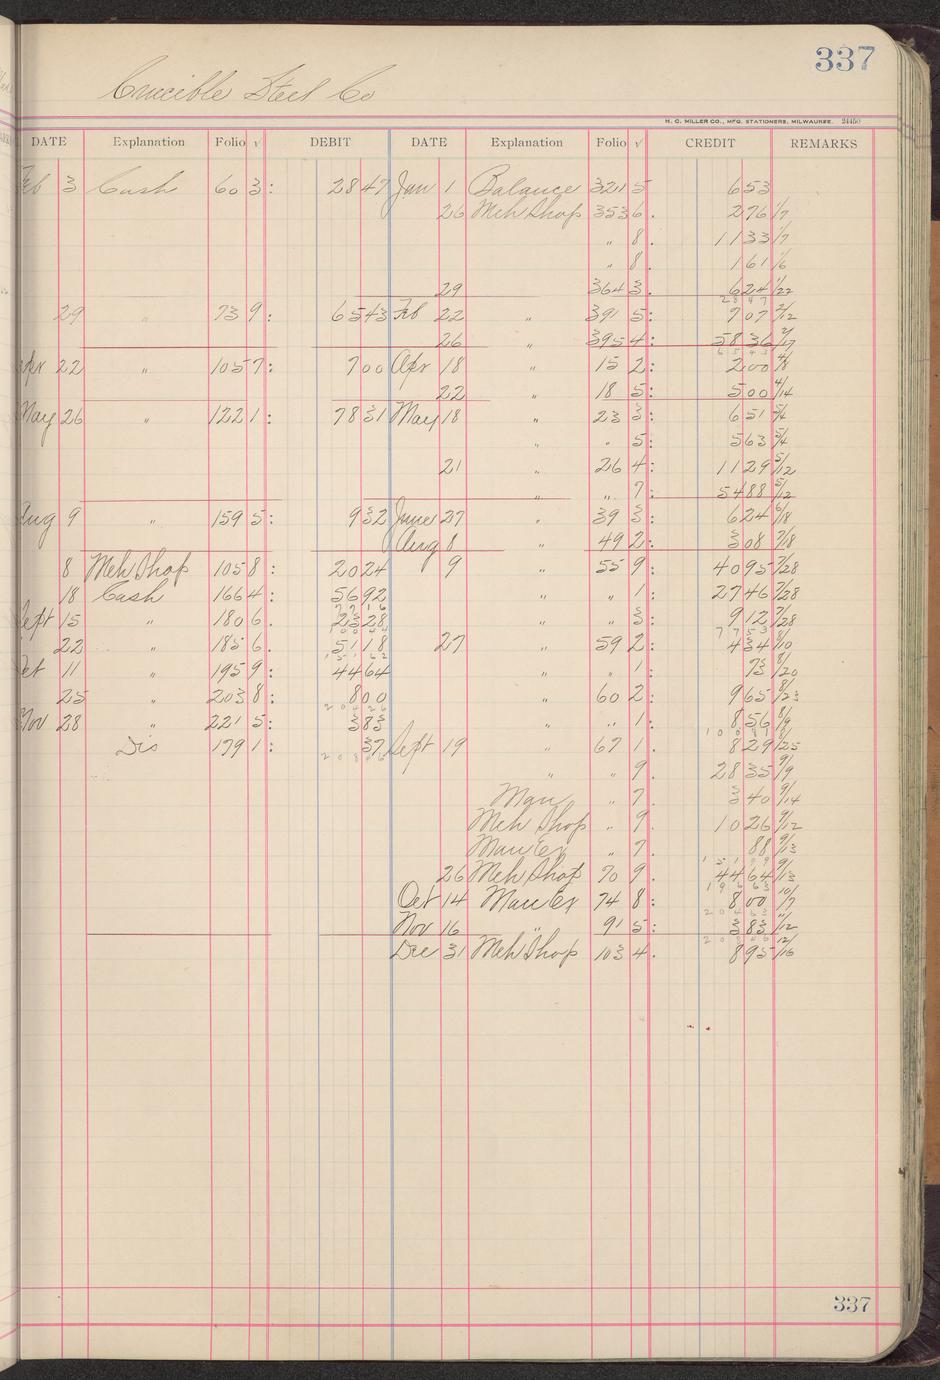 337
Crucible Steel Co
H. C. MILLER CO., MFG. STATIONERS, MILWAUKEE. 24450
DATE Explanation Folio √ DEBIT DATE Explanation Folio √ CREDIT REMARKS
Feb 3 Cash 60 3: 28 47 Jan 1 Balance 321 5 6 53
26 Meh Shop 353 6. 2 76 1/7
" 8. 11 33 1/7
" 8. 1 61 1/6
29 364 3. 6 24 1/22
28 47
29 " 73 9: 65 43 Feb 22 " 391 5: 7 07 2/12
26 395 4: 58 36 2/17
65 43
Apr 22 " 105 7: 7 00 Apr 18 " 15 2: 2 00 4/8
22 " 18 5: 5 00 4/14
May 26 " 122 1: 78 31 May 18 " 23 3: 6 51 5/4
" " 5: 5 63 5/4
21 " 26 4: 11 29 5/12
" " 7: 54 88 5/12
Aug 9 " 159 5: 9 32 June 27 " 39 3: 6 24 6/18
Aug 8 " 49 2: 3 08 7/18
8 Meh Shop 105 8: 20 24 9 " 55 9: 40 95 7/28
18 Cash 166 4: 56 92 " " 1: 27 46 7/28
77 16
Sept 15 " 180 6. 23 28 " " 3: 9 12 7/28
100 44 77 53
22 " 185 6. 51 18 27 " 59 2: 4 34 8/10
151 62
Oct 11 " 195 9: 44 64 " " 1: 73 8/20
25 " 203 8: 8 00 " 60 2: 9 65 8/23
204 26
Nov 28 " 221 5: 3 83 " " 1: 8 56 8/9
100 81
Dis 179 1: 37 Sept 19 " 67 1. 8 29 8/25
208 46
" " 9. 28 35 9/9
Man " 7. 3 40 9/14
Meh Shop " 9. 10 26 9/12
Man Ex " 7. 88 9/13
151 99
26 Meh Shop 70 9. 44 64 9/13
196 63
Oct 14 Man Ex 74 8: 8 00 10/7
204 63
Nov 16 " 91 5: 3 83 11/12
208 46
Dec 31 Meh Shop 103 4. 8 95 12/16
337